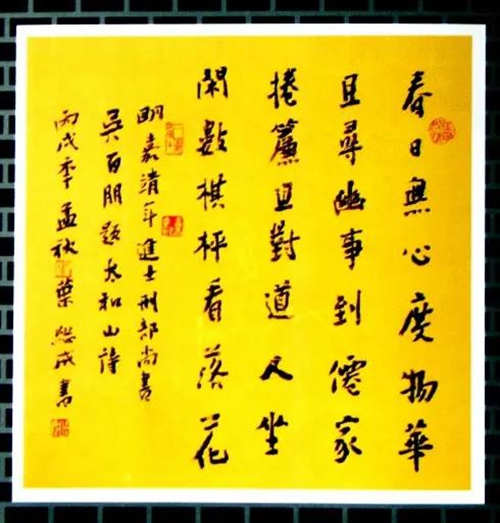 春日無心度物華
且尋幽事到僊家
捲簾且對道人坐
閑數棋枰看落花
明嘉靖年進士刑部尚書
吳百朋題太和山詩
丙戌秊孟秋葉成書